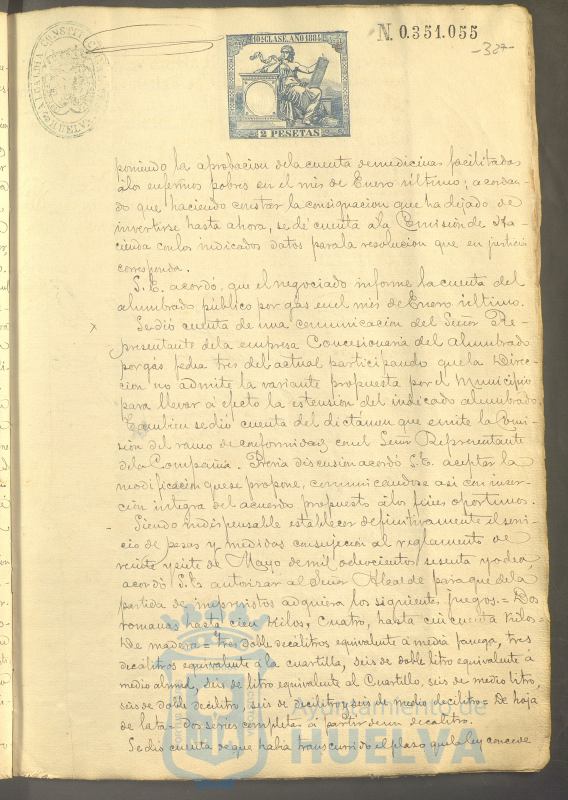 N. 0.351.055
-327-
10ª CLASE. AÑO 1884
2 PESETAS
ALCALDIA CONSTITUCIONAL
HUELVA
poniendo la aprobacion de la cuenta de medicinas facilitadas
á los enfermos pobres en el mes de Enero último; acordan-
do que haciendo constar la consignacion que ha dejado de
invertirse hasta ahora, se dé cuenta a la Comisión de Ha-
cienda con los indicados datos para la resolucion que en justicia
corresponda.
S.E. acordó, que el negociado informe la cuenta del
alumbrado público por gas en el mes de Enero último.
Se dió cuenta de una comunicacion del Señor Re-
presentante de la empresa Concesionaria del alumbrado
por gas fecha tres del actual participando que la Direc-
cion no admite la variante propuesta por el Municipio
para llevar á efecto la estensión del indicado alumbrado.
Tambien se dió cuenta del dictámen que emite la Comi-
sion del ramo de conformidad con el Señor Representante
de la Compañia. Prévia discusion acordó S.E. aceptar la
modificacion que se propone, comunicandose asi con inser-
ción integra del acuerdo propuesto á los fines oportunos.
Siendo indispensable establecer definitivamente el servi-
cio de pesas y medidas con sujeción al reglamento de
veinte y siete de Mayo de mil ochocientos sesenta y ocho,
acordó S.E. autorizar al Señor Alcalde para que de la
partida de imprevistos adquiera los siguientes juegos. = Dos
romanas hasta cien Kilos, Cuatro, hasta cincuenta Kilos =
De madera = tres doble decálitros equivalente á media fanega, tres
decálitros equivalente á la cuartilla, seis de doble litro equivalente á
medio almud, seis de litro equivalente al Cuartillo, seis de medio litro,
seis de doble decilitro, seis de decilitro y seis de medio decilitro = De hoja
de lata = dos series completas á partir de un decalitro.
Se dió cuenta de que habia transcurrido el plazo que la ley concede
Ayuntamiento de
HUELVA